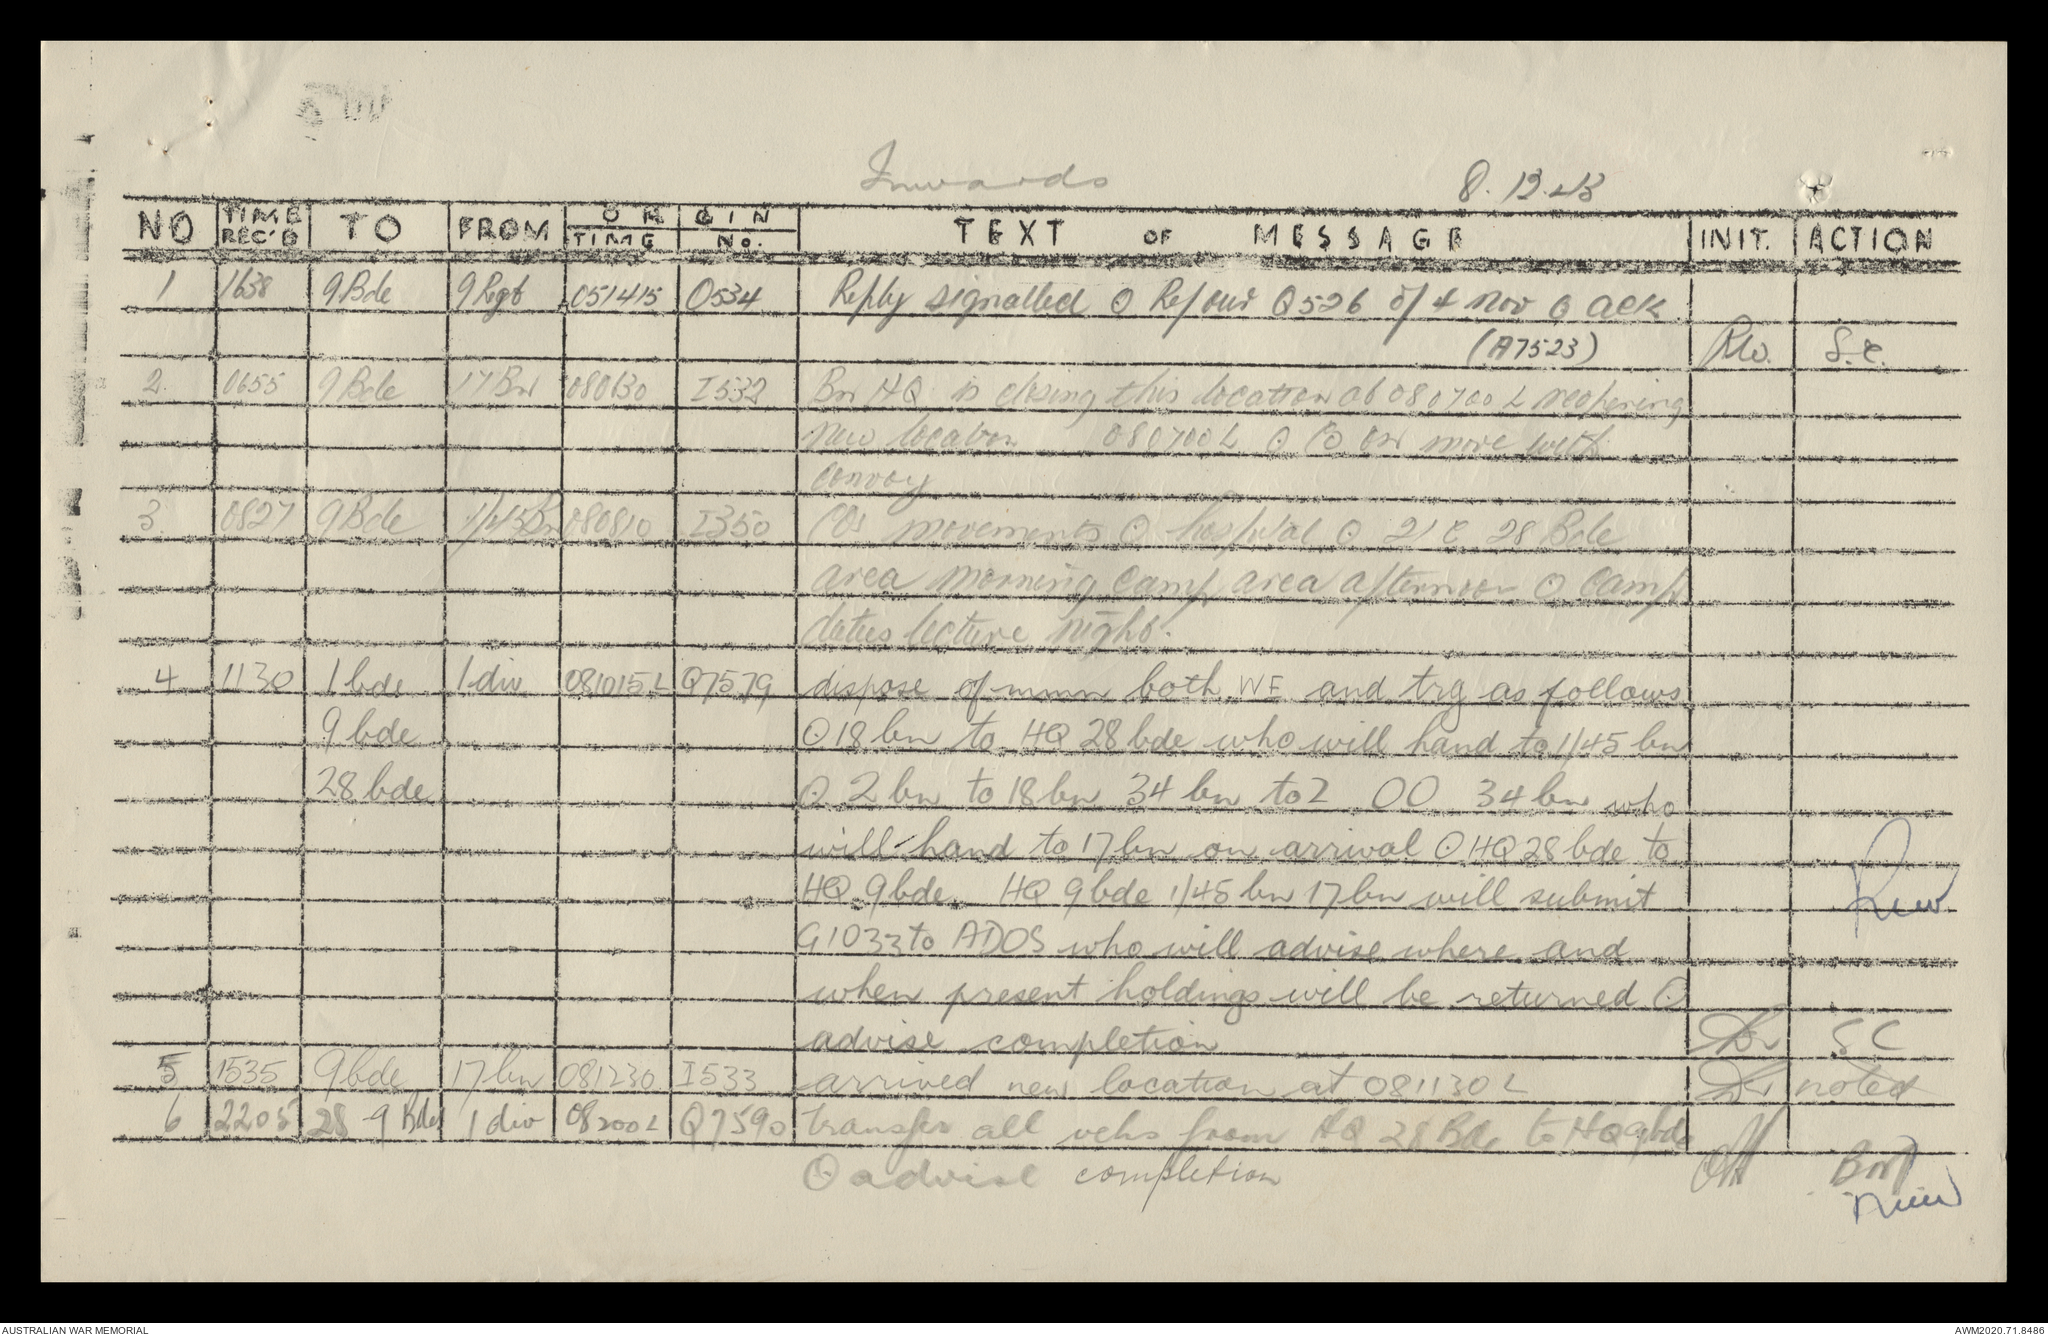 Inwards
8.12.43
NO TIME REC'D TO FROM ORIGIN TIME No. TEXT OF MESSAGE INIT. ACTION
1 1638 9 Bde 9 Regt 051415 O534 Reply signalled O Ref our Q526 of 4 Nov O ack
(A7523) S.C.
2. 0655 9 Bde 17 Bn 080630 I532 Bn HQ is closing this location at 080700L reopening
new location 080700L O CO on move with
convoy
3. 0827 9 Bde 1/45 Bn 080810 I350 COs movements O hospital O 21 C 28 Bde
area morning camp area afternoon O camp
duties lecture night.
4 1130 1 bde 1 div 081015L Q7579 dispose of mmn both WE and trg as follows
9 bde O 18 bn to HQ 28 bde who will hand to 1/45 bn
28 bde O 2 bn to 18 bn 34 bn to 2 OO 34 bn who
will hand to 17 bn on arrival O HQ 28 bde to
HQ 9 bde. HQ 9 bde 1/45 bn 17 bn will submit
G1033 to ADOS who will advise where and
when present holdings will be returned O
advise completion SC
5 1535 9 bde 17 bn 081230 I533 arrived new location at 081130L noted
6 2205 28 - 9 Bdes 1 div 082000L Q7590 transfer all vehs from HQ 28 Bde to HQ 9 bde
O advise completion
AUSTRALIAN WAR MEMORIAL
AWM2020.71.8486